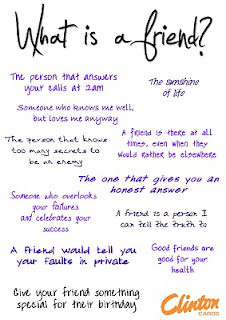 What is a friend?
The person that answers
your calls at 2am
The sunshine
of life
Someone who knows me well,
but loves me anyway
The person that knows
too many secrets to
be an enemy
A friend is there at all
times, even when they
would rather be elsewhere
The one that gives you an
honest answer
Someone who overlooks
your failures
and celebrates your
success
A friend is a person I
can tell the truth to
A friend would tell you
your faults in private
Good friends are
good for your
health
Give your friend something
special for their birthday
Clinton
CARDS